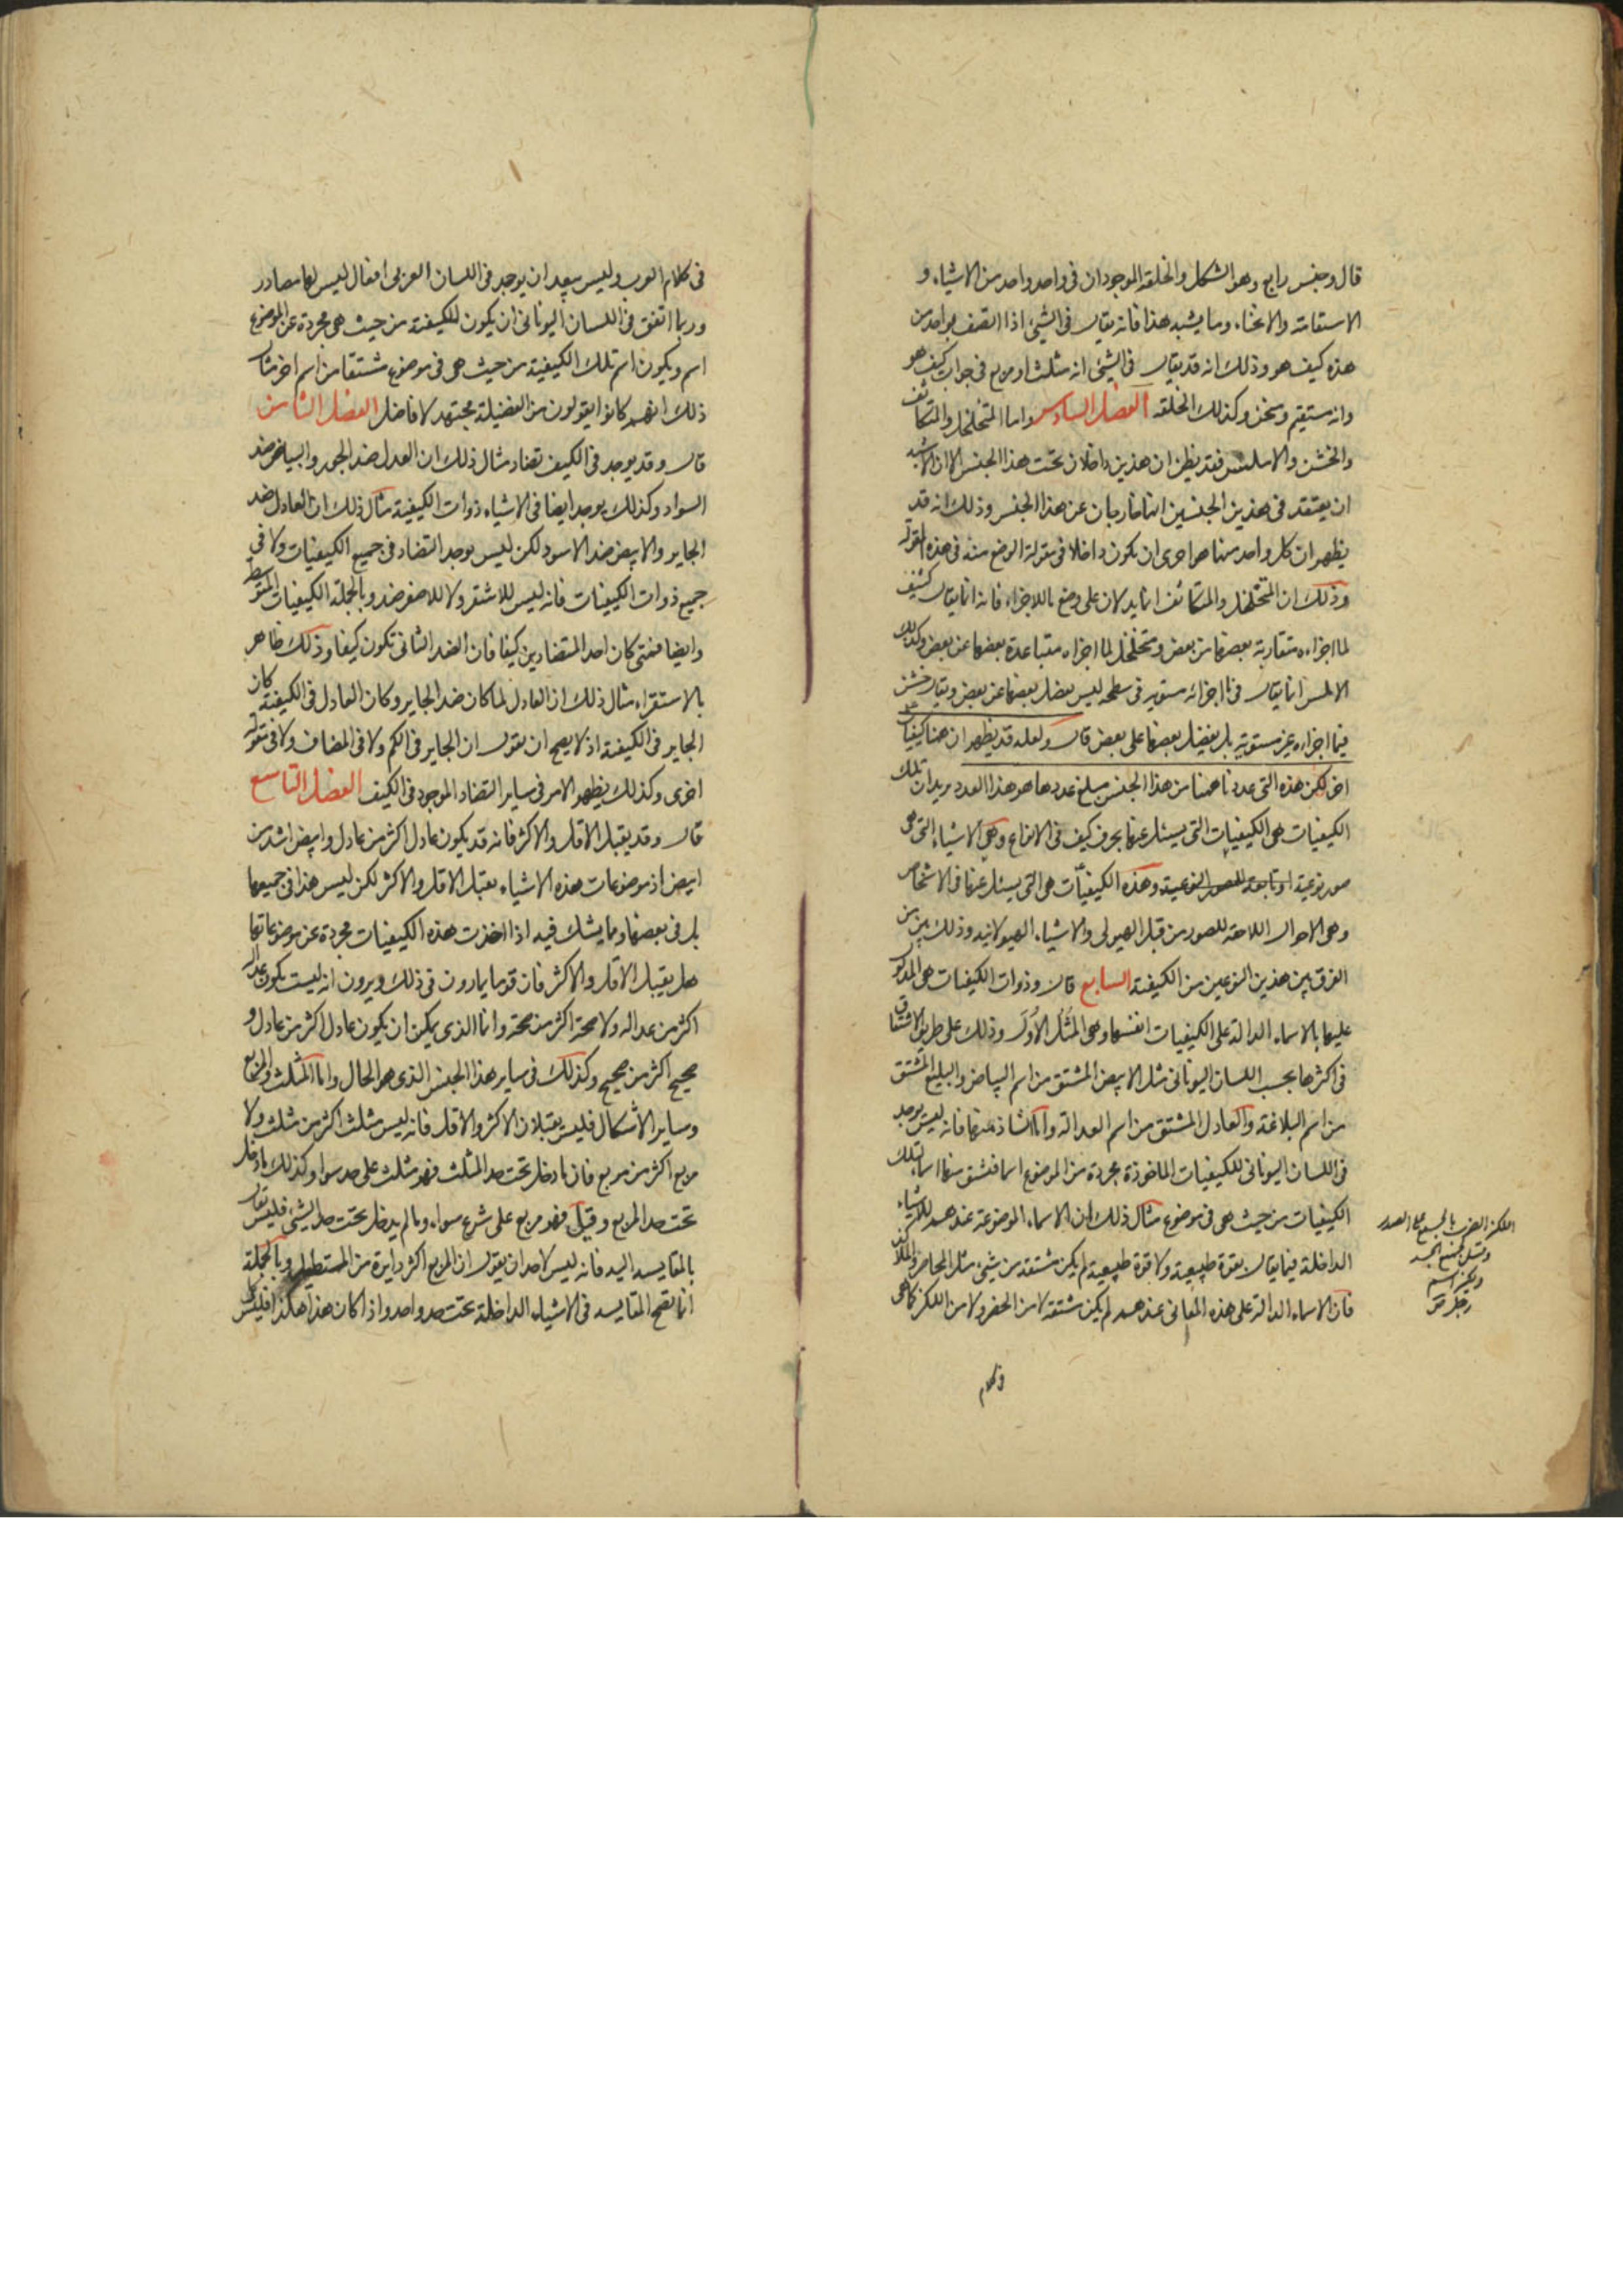 قال وجنس رابع وهو الشكل والخلقة الموجودان فى واحد واحد من الاشياء و
الاستقامة والانحناء وما يشبه هذا فانه يقال فى الشئ اذا اتصف بواحد من
هذه كيف هو وذلك انه قد يقال فى الشئ انه مثلث او مربع فى جواب كيف هو
وانه مستقيم ومنحن وكذلك الخلقه الفصل السادس واما المتخلخل والمتكاثف
والخشن والاملس فقد يظن ان هذين داخلان تحت هذا الجنس الا ان الاشبه
ان يعتقد فى هذين الجنسين انهما خارجان عن هذا الجنس وذلك انه قد
يظهر ان كل واحد منهما هو احرى ان يكون داخلا فى مقولة الوضع منه فى هذه المقولة
وذلك ان المتخلخل والمتكاثف انما يدلان على وضع ما للاجزاء فانه انما يقال كثيف
لما اجزاءه متقاربة بعضها من بعض ومتخلخل لما اجزاءه متباعدة بعضها عن بعض وكذلك
الاملس انما يقال فيما اجزائه مستوية فى سطحه ليس يفضل بعضها عن بعض ويقال خشن
فيما اجزاءه غير مستوية بل يفضل بعضها على بعض قال ولعله قد يظهر ان هنا كيفيات
اخر لكن هذه التى عددنا ههنا من هذا الجنس مبلغ عددها هو هذا العدد يريد ان تلك
الكيفيات هى الكيفيات التى يسئل عنها بحرف كيف فى الانواع وهى الاشياء التى هى
صور نوعية او تابعة للصور النوعية وهذه الكيفيات هى التى يسئل عنها فى الاشخاص
وهى الاحوال اللاحقة للصور من قبل الهيولى والاشياء الهيولانيه وذلك بين من
الفرق بين هذين النوعين من الكيفية السابع قال وذوات الكيفيات هى المدلول
عليها بالاسماء الدالة على الكيفيات انفسها وهى المثل الاول وذلك على طريق الاشتقاق
فى اكثرها بحسب اللسان اليونانى مثل الابيض المشتق من اسم البياض والبليغ المشتق
من اسم البلاغة والعادل المشتق من اسم العدالة واما الشاذ منها فانه ليس يوجد
فى اللسان اليونانى للكيفيات الماخوذة مجردة من الموضوع اسما فتشتق منها اسماء تلك
الكيفيات من حيث هى فى موضوع مثال ذلك ان الاسماء الموضوعة عندهم للاشياء
الداخلة فيما يقال بقوة طبيعية ولا قوة طبيعية لم يكن مشتقة من شئ مثل المحاضر والملاكز
فان الاسماء الدالة على هذه المعانى عندهم لم يكن مشتقة لا من الحضر ولا من اللكز كما هى
وكلام
اللكز الضرب بالجمع على الصدر
فى كلام العرب وليس ببعيد ان يوجد فى اللسان العربى افعال ليس لها مصادر
وربما اتفق فى اللسان اليونانى ان يكون للكيفية من حيث هى مجردة عن الموضوع
اسم ويكون اسم تلك الكيفية من حيث هى فى موضوع مشتقا من اسم اخر مثال
ذلك انهم كانوا يقولون من الفضيلة مجتهد لا فاضل الفصل الثامن
قال وقد يوجد فى الكيف تضاد مثال ذلك ان العدل ضد الجور والبياض ضد
السواد وكذلك يوجد ايضا فى الاشياء ذوات الكيفية مثال ذلك ان العادل ضد
الجاير والابيض ضد الاسود لكن ليس يوجد التضاد فى جميع الكيفيات ولا فى
جميع ذوات الكيفيات فانه ليس للاشقر ولا للاصفر ضد وبالجملة الكيفيات المتوسطة
وايضا فمتى كان احد المتضادين كيفا فان الضد الثانى تكون كيفا وذلك ظاهر
بالاستقراء مثال ذلك ان العادل لما كان ضد الجاير وكان العادل فى الكيفية كان
الجاير فى الكيفية اذ لا يصح ان نقول ان الجاير فى الكم ولا فى المضاف ولا فى مقولة
اخرى وكذلك يظهر الامر فى ساير التضاد الموجود فى الكيف الفصل التاسع
قال وقد يقبل الاقل والاكثر فانه قد يكون عادل اكثر من عادل وابيض اشد من
ابيض اذ موضوعات هذه الاشياء يقبل الاقل والاكثر لكن ليس هذا فى جميعها
بل فى بعضها ومما يشك فيه اذا اخذت هذه الكيفيات مجردة عن موضوعاتها
هل يقبل الاقل والاكثر فان قوما يمارون فى ذلك ويرون انه ليست يكون عدالة
اكثر من عداله ولا صحة اكثر من صحة وانما الذى يمكن ان يكون عادل اكثر من عادل و
صحيح اكثر من صحيح وكذلك فى ساير هذا الجنس الذى هو الحال واما المثلث والمربع
وساير الاشكال فليس يقبلان الاكثر والاقل فانه ليس مثلث اكثر من مثلث ولا
مربع اكثر من مربع فان ما دخل تحت حد المثلث فهو مثلث على حد سوا وكذلك ما دخل
تحت حد المربع وقيل فهو مربع على شرع سواء وما لم يدخل تحت حد الشئ فليس يقال
بالمقايسه اليه فانه ليس لاحد ان يقول ان المربع اكثر دايرة من المستطيل وبالجملة
انما تصح المقايسه فى الاشياء الداخلة تحت حد واحد واذا كان هذا هكذا فليس كل